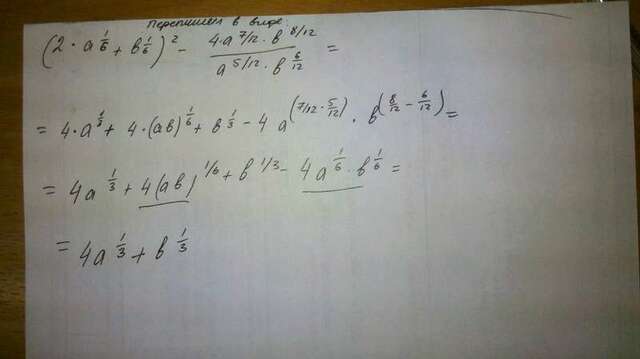 Перепишем в виде:
(2·a^{1/6} + b^{1/6})^2 - \frac{4·a^{7/12}·b^{8/12}}{a^{5/12}·b^{6/12}} =
= 4·a^{1/3} + 4·(ab)^{1/6} + b^{1/3} - 4 a^{(7/12·5/12)}·b^{(8/12 - 6/12)} =
= 4a^{1/3} + 4(ab)^{1/6} + b^{1/3} - 4a^{1/6}·b^{1/6} =
= 4a^{1/3} + b^{1/3}